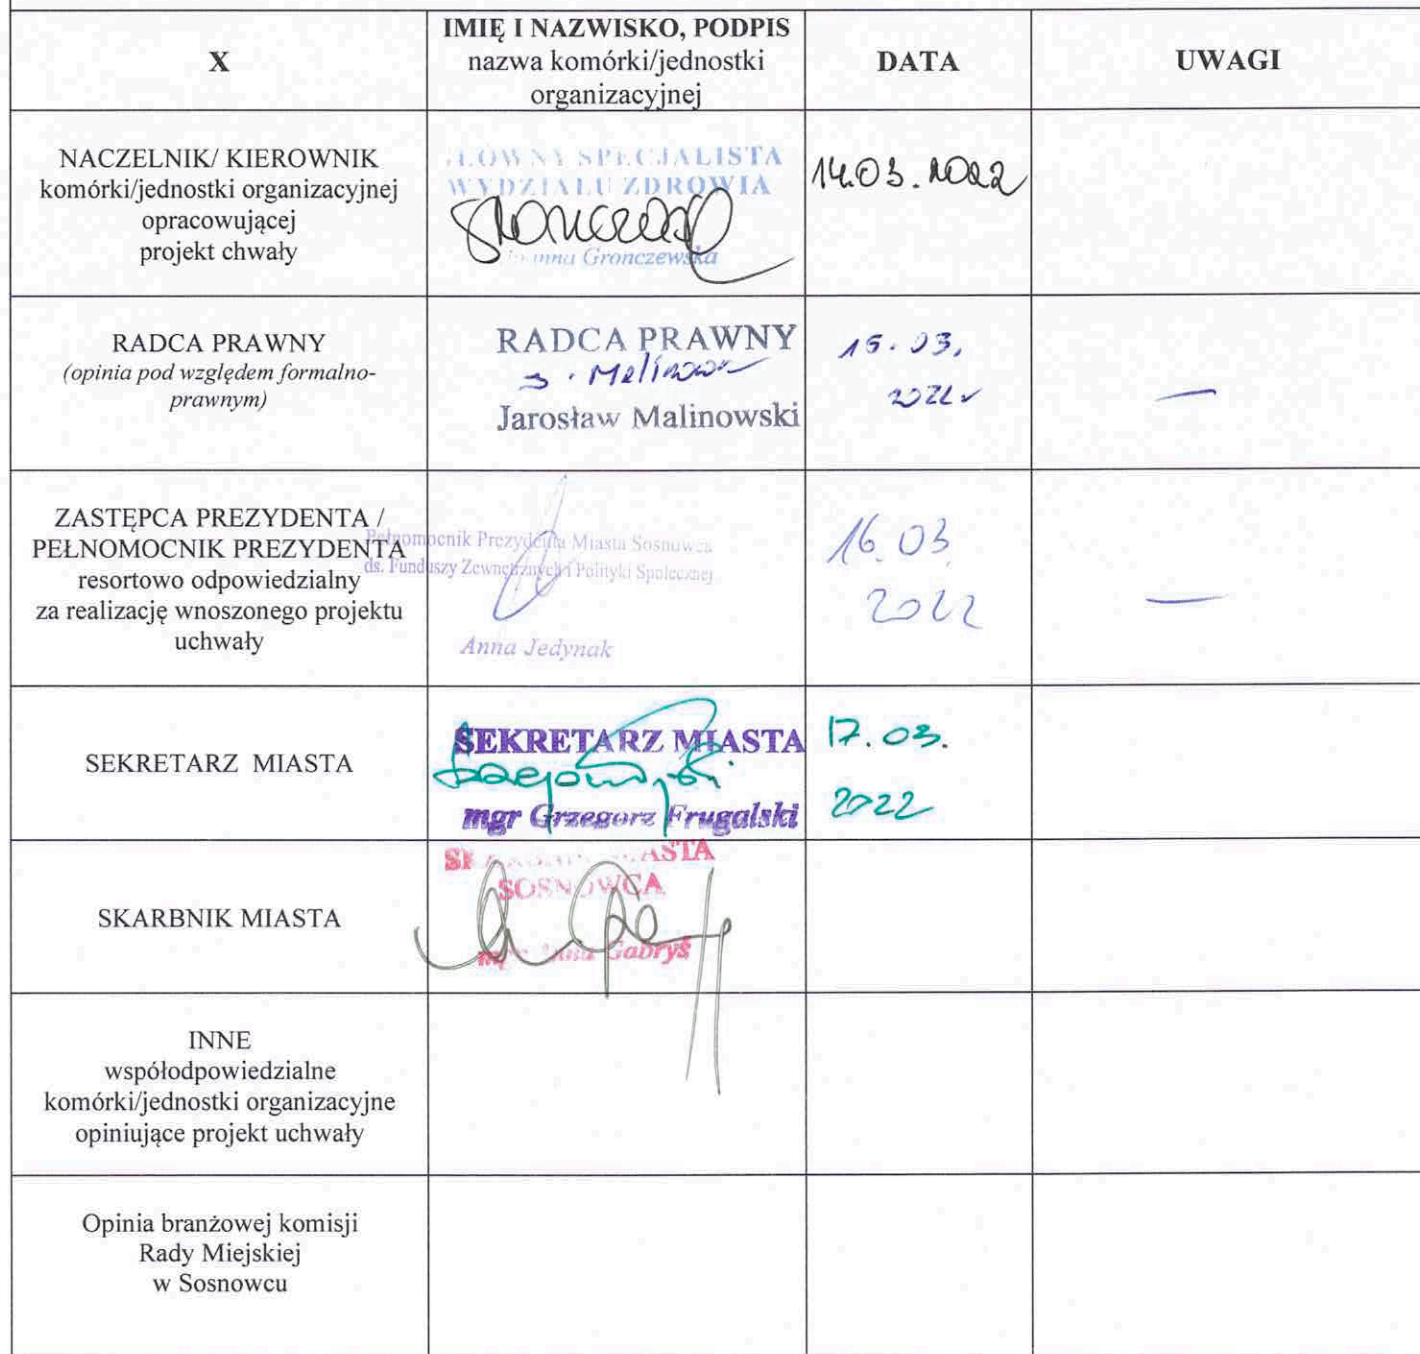 X
IMIĘ I NAZWISKO, PODPIS
nazwa komórki/jednostki
organizacyjnej
DATA
UWAGI
NACZELNIK/ KIEROWNIK
komórki/jednostki organizacyjnej
opracowującej
projekt chwały
SPECJALISTA
WYDZIAŁU ZDROWIA
Gronczewska
14.03.2022
RADCA PRAWNY
(opinia pod względem formalno-
prawnym)
RADCA PRAWNY
J. Malinow
Jarosław Malinowski
15.03.
2022 r
—
ZASTĘPCA PREZYDENTA /
PEŁNOMOCNIK PREZYDENTA
resortowo odpowiedzialny
za realizację wnoszonego projektu
uchwały
Pełnomocnik Prezydenta Miasta Sosnowca
ds. Funduszy Zewnętrznych i Polityki Społecznej
Anna Jedynak
16.03
2022
—
SEKRETARZ MIASTA
SEKRETARZ MIASTA
mgr Grzegorz Frugalski
17.03.
2022
SKARBNIK MIASTA
MIASTA
SOSNOWCA
mgr Anna Gabryś
INNE
współodpowiedzialne
komórki/jednostki organizacyjne
opiniujące projekt uchwały
Opinia branżowej komisji
Rady Miejskiej
w Sosnowcu